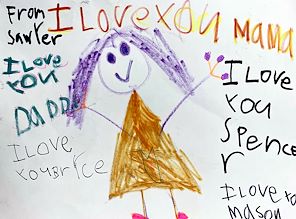 From
sawter
I Love YOU MAMA
I Love
YOU
DADD
I Love
YOUBrYce
I Love
You
Spence
r
I Love Yo
mason